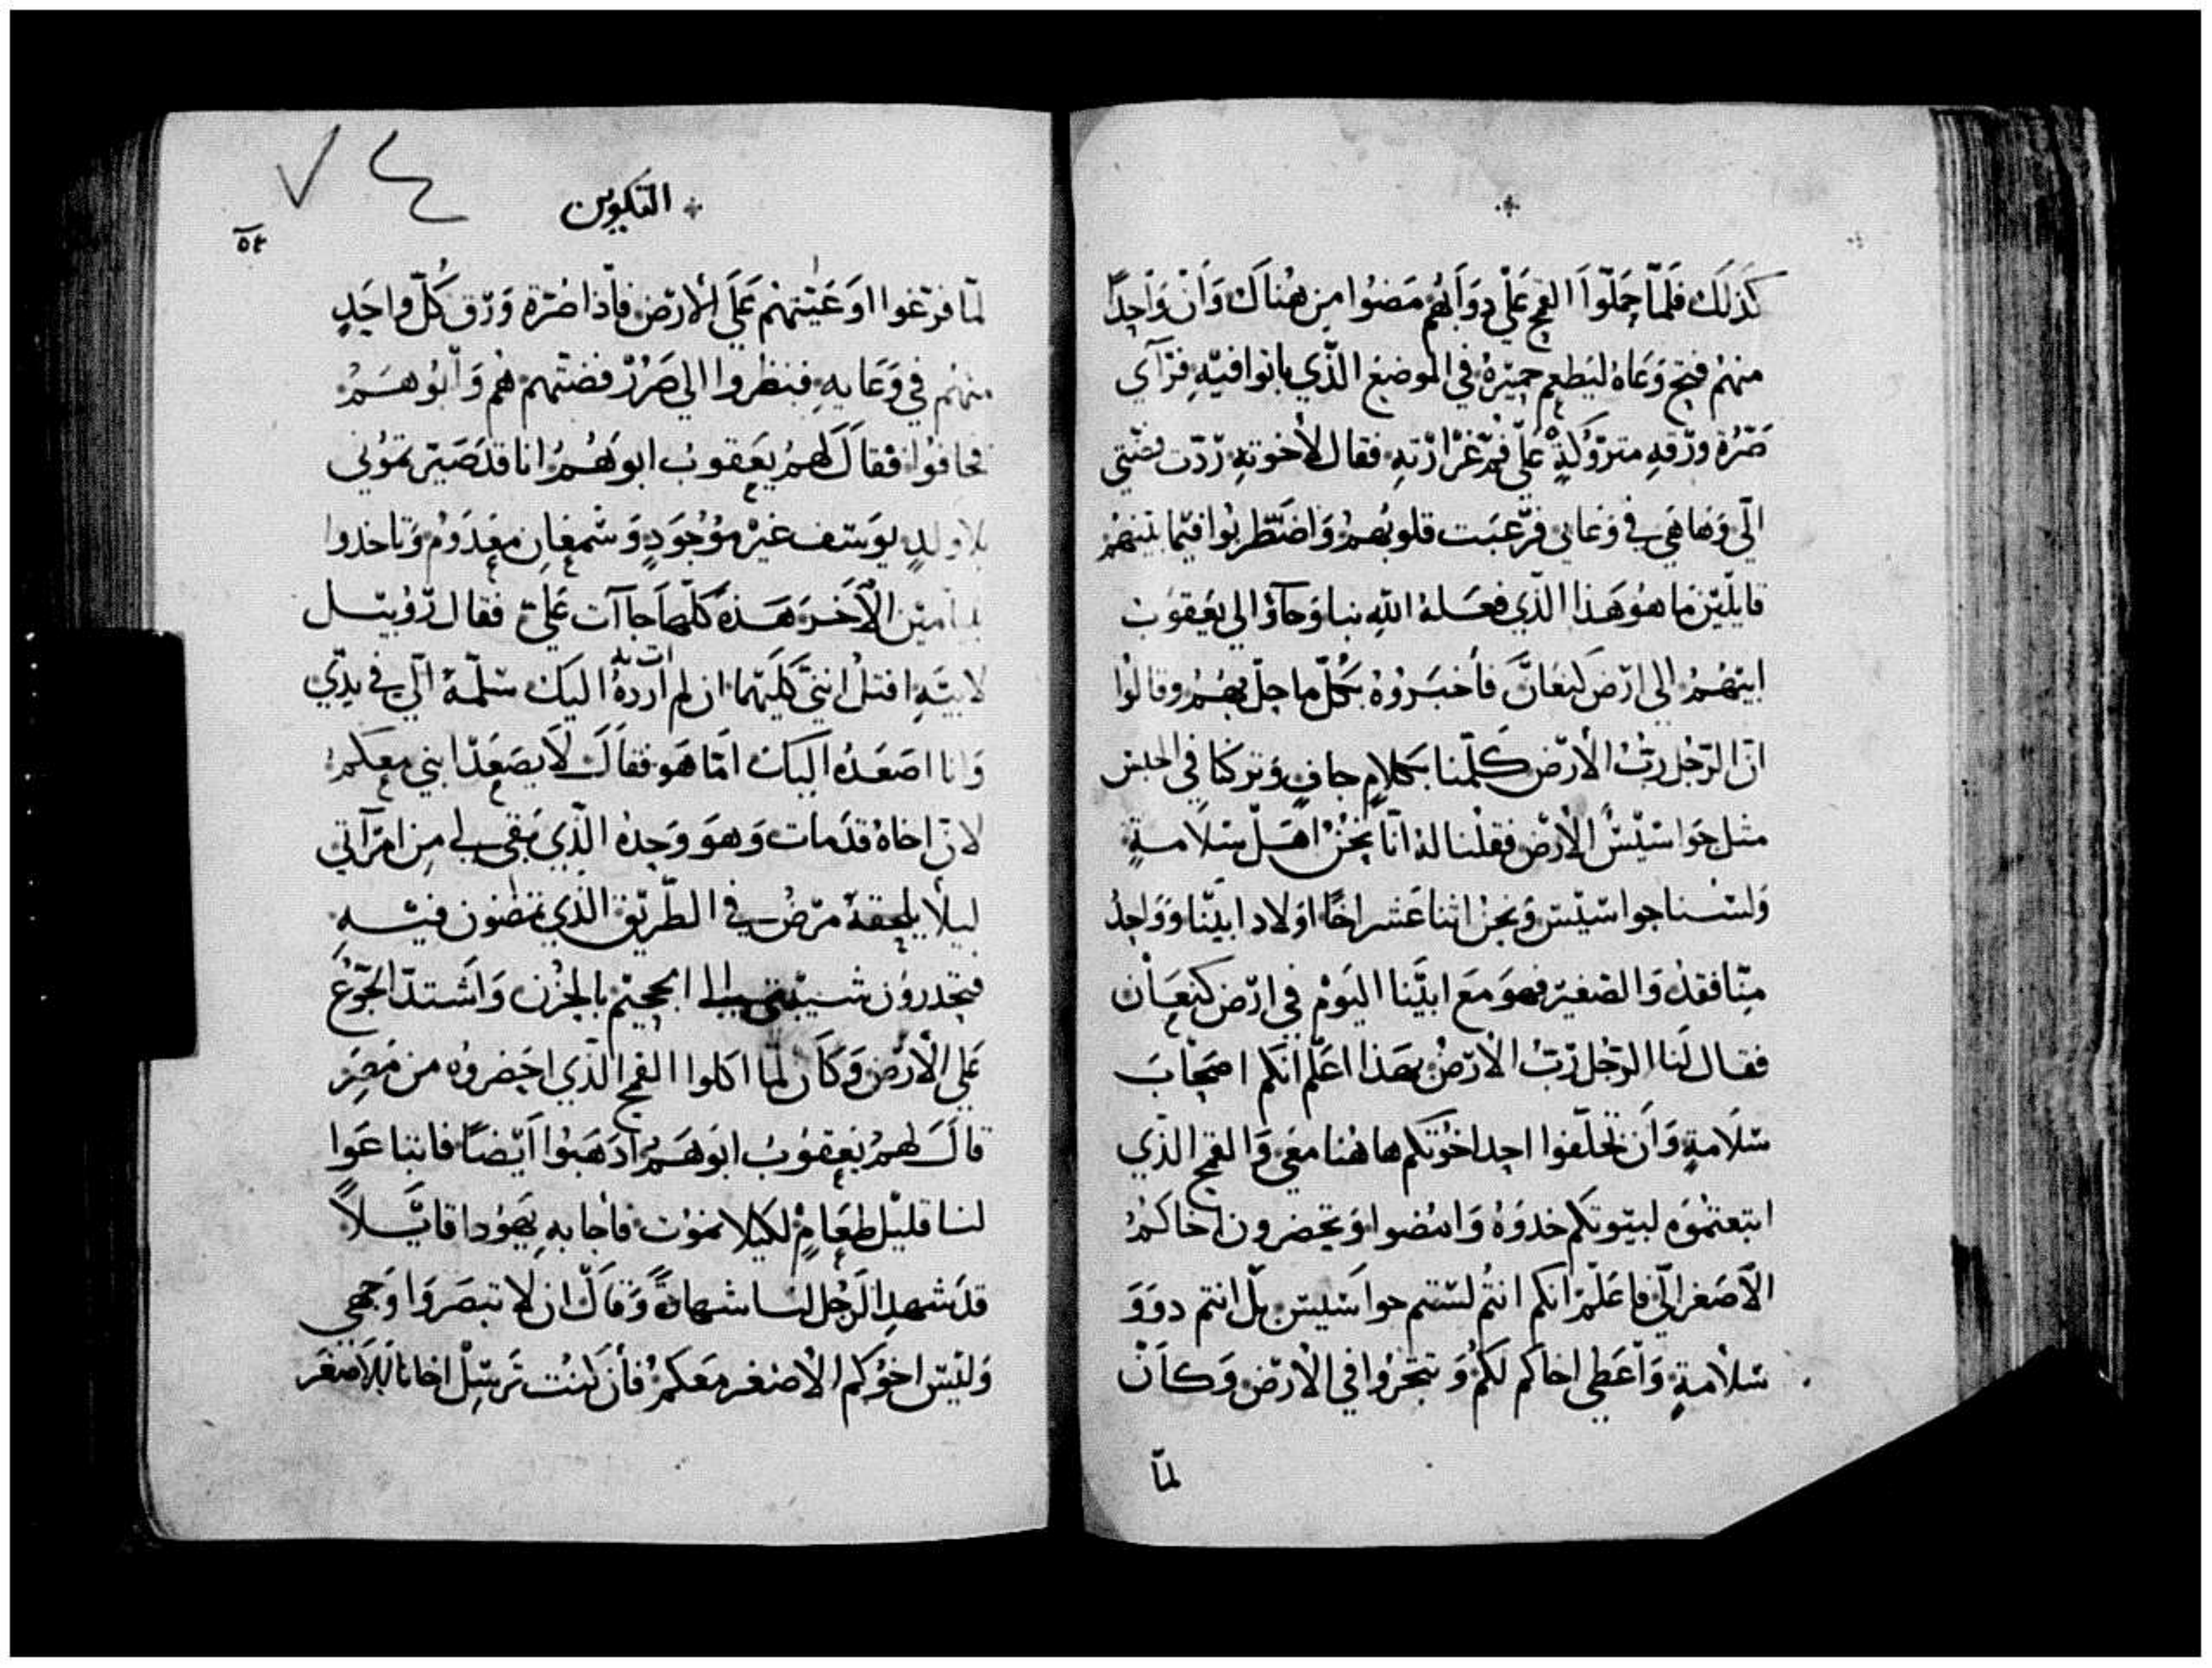 كذلك فلمّا حملوا القمح علي دوابهم مضوا من هناك وان واحدًا
منهم فتح وعاه ليطعم حميره في الموضع الذي باتوا فيه فرآي
صرة ورقه متروكةٍ علي فم غرارته فقال لأخوته ردّت فضتي
الّي وها هي في وعاي فرعبت قلوبهم واضطربوا فيما بينهم
قايلين ما هو هذا الذي فعله الله بنا وجآوْا الي يعقوب
ابيهم الي ارض كنعان فأخبروه بكلّ ما حلّ بهم وقالوا
انّ الرّجل ربّ الأرض كلّمنا بكلامٍ جافٍ وتركنا في الحبس
مثل جواسيس الأرض فقلنا له انّا نحن اهل سلامةٍ
ولسنا جواسيس ونحن اثنا عشر اخًا اولاد ابينا وواحد
منّا فقد والصغير فهو مع ابينا اليوم في ارض كنعان
فقال لنا الرّجل ربّ الأرض بهذا اعلم انكم اصحاب
سلامةٍ وان تخلّفوا احد اخوتكم هاهنا معي والقمح الذي
ابتعتموه لبيوتكم خدوه وامضوا وتحضرون اخاكم
الأصغر الّي فاعلم انكم انتم لستم جواسيس بل انتم دوو
سلامةٍ وأعطي اخاكم لكم وتتجروا في الأرض وكان
لمّا
التكوين
٥٤
لمّا فرغوا اوعيتهم علي الأرض فاذا صرّة ورق كلّ واحدٍ
منهم في وعايهِ فنظروا الي صرر فضتهم هم وابوهم
فخافوا فقال لهم يعقوب ابوهم انا قد صيرتموني
بلا ولدٍ يوسف غير موجودٍ وشمعان معدوم وتاخدوا
بنيامين الأخر هذه كلّها جاآت عليّ فقال روبيل
لابيهِ اقتل ابنيّ كليهما ان لم أرده اليك سلّمه الّي في يدّي
وانا اصعده اليك امّا هو فقال لا يصعد ابني معكم
لانّ اخاه قد مات وهو وحده الذي بقي لي من امرآتي
ليلاً يلحقه مرض في الطريق الذي تمضون فيه
فتحدرون شيبتي الي الجحيم بالحزن واشتدّ الجوع
علي الأرض وكان لمّا اكلوا القمح الذي احضروه من مصر
قال لهم يعقوب ابوهم ادهبوا ايضًا فابتاعوا
لنا قليل طعامٍ لكيلا نموت فأجابه يهودا قايلاً
قد شهد الرجل لنا شهادةً وقال ان لا تبصروا وجهي
وليس اخوكم الأصغر معكم فأن كنت ترسل اخانا الأصغر